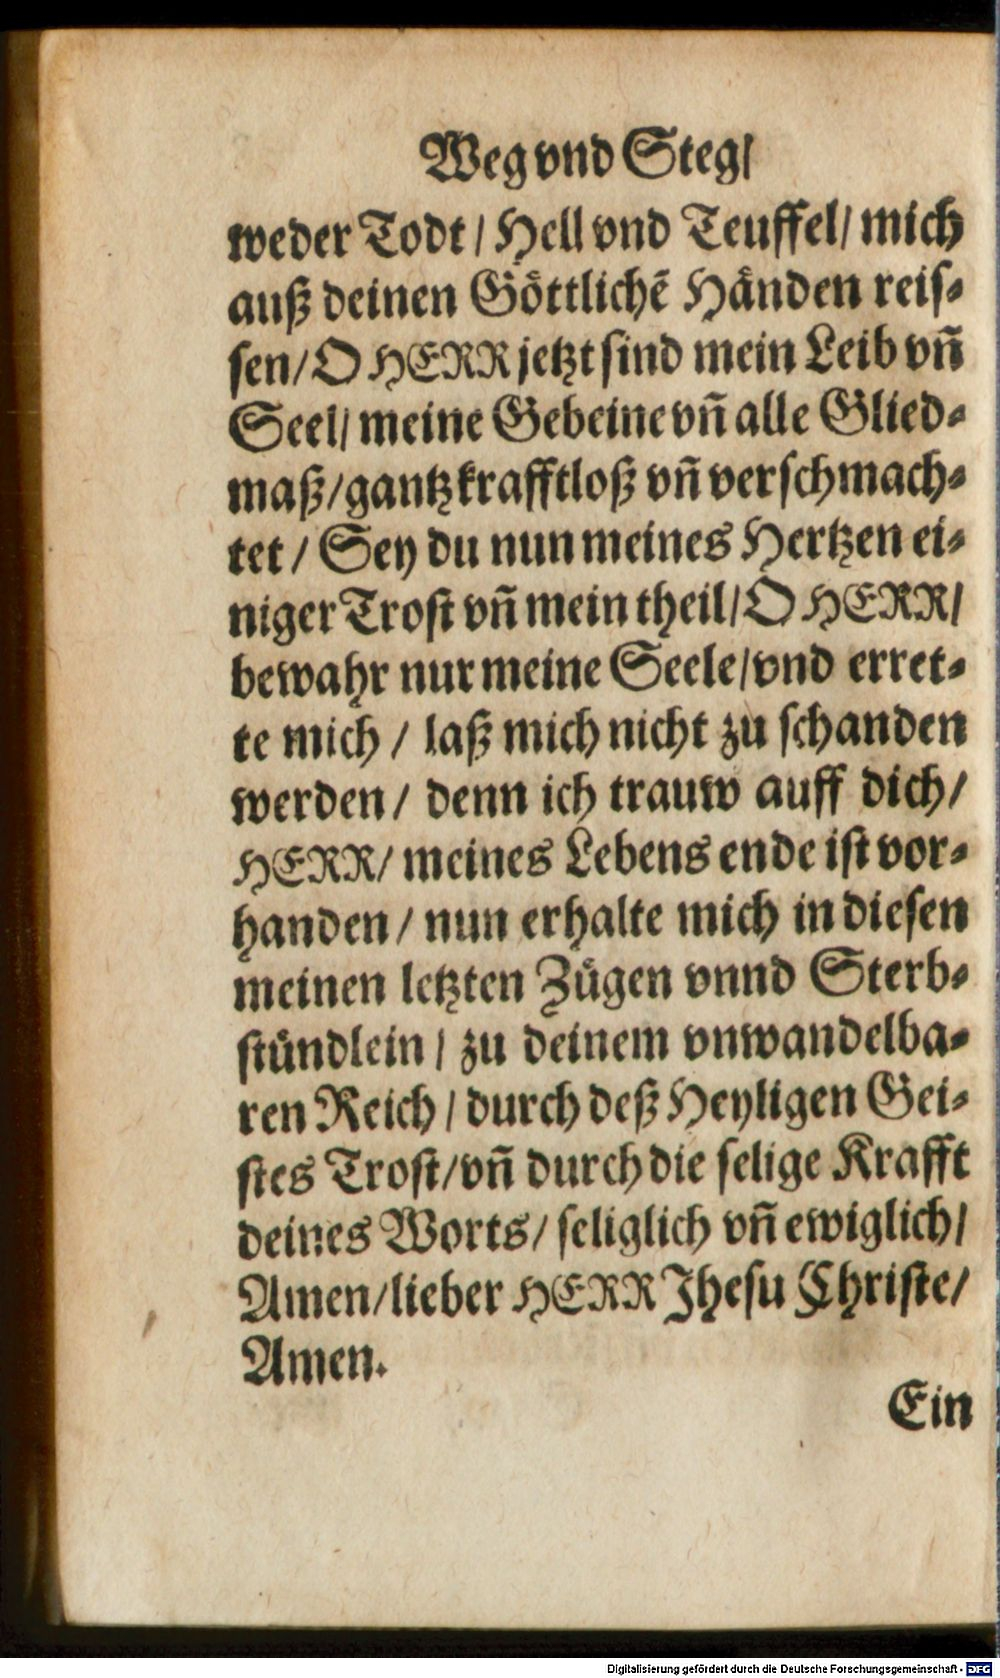 Weg vnd Steg/
weder Todt / Hell vnd Teuffel / mich
auß deinen Göttlichẽ Händen reis-
sen / O HERR jetzt sind mein Leib vñ
Seel / meine Gebeine vñ alle Glied-
maß / gantz krafftloß vñ verschmach-
tet / Sey du nun meines Hertzen ei-
niger Trost vñ mein theil / O HERR /
bewahr nur meine Seele / vnd erret-
te mich / laß mich nicht zu schanden
werden / denn ich trauw auff dich /
HERR / meines Lebens ende ist vor-
handen / nun erhalte mich in diesen
meinen letzten Zügen vnnd Sterb-
stündlein / zu deinem vnwandelba-
ren Reich / durch deß Heyligen Gei-
stes Trost / vñ durch die selige Krafft
deines Worts / seliglich vñ ewiglich /
Amen / lieber HERR Jhesu Christe /
Amen.
Ein
Digitalisierung gefördert durch die Deutsche Forschungsgemeinschaft - DFG